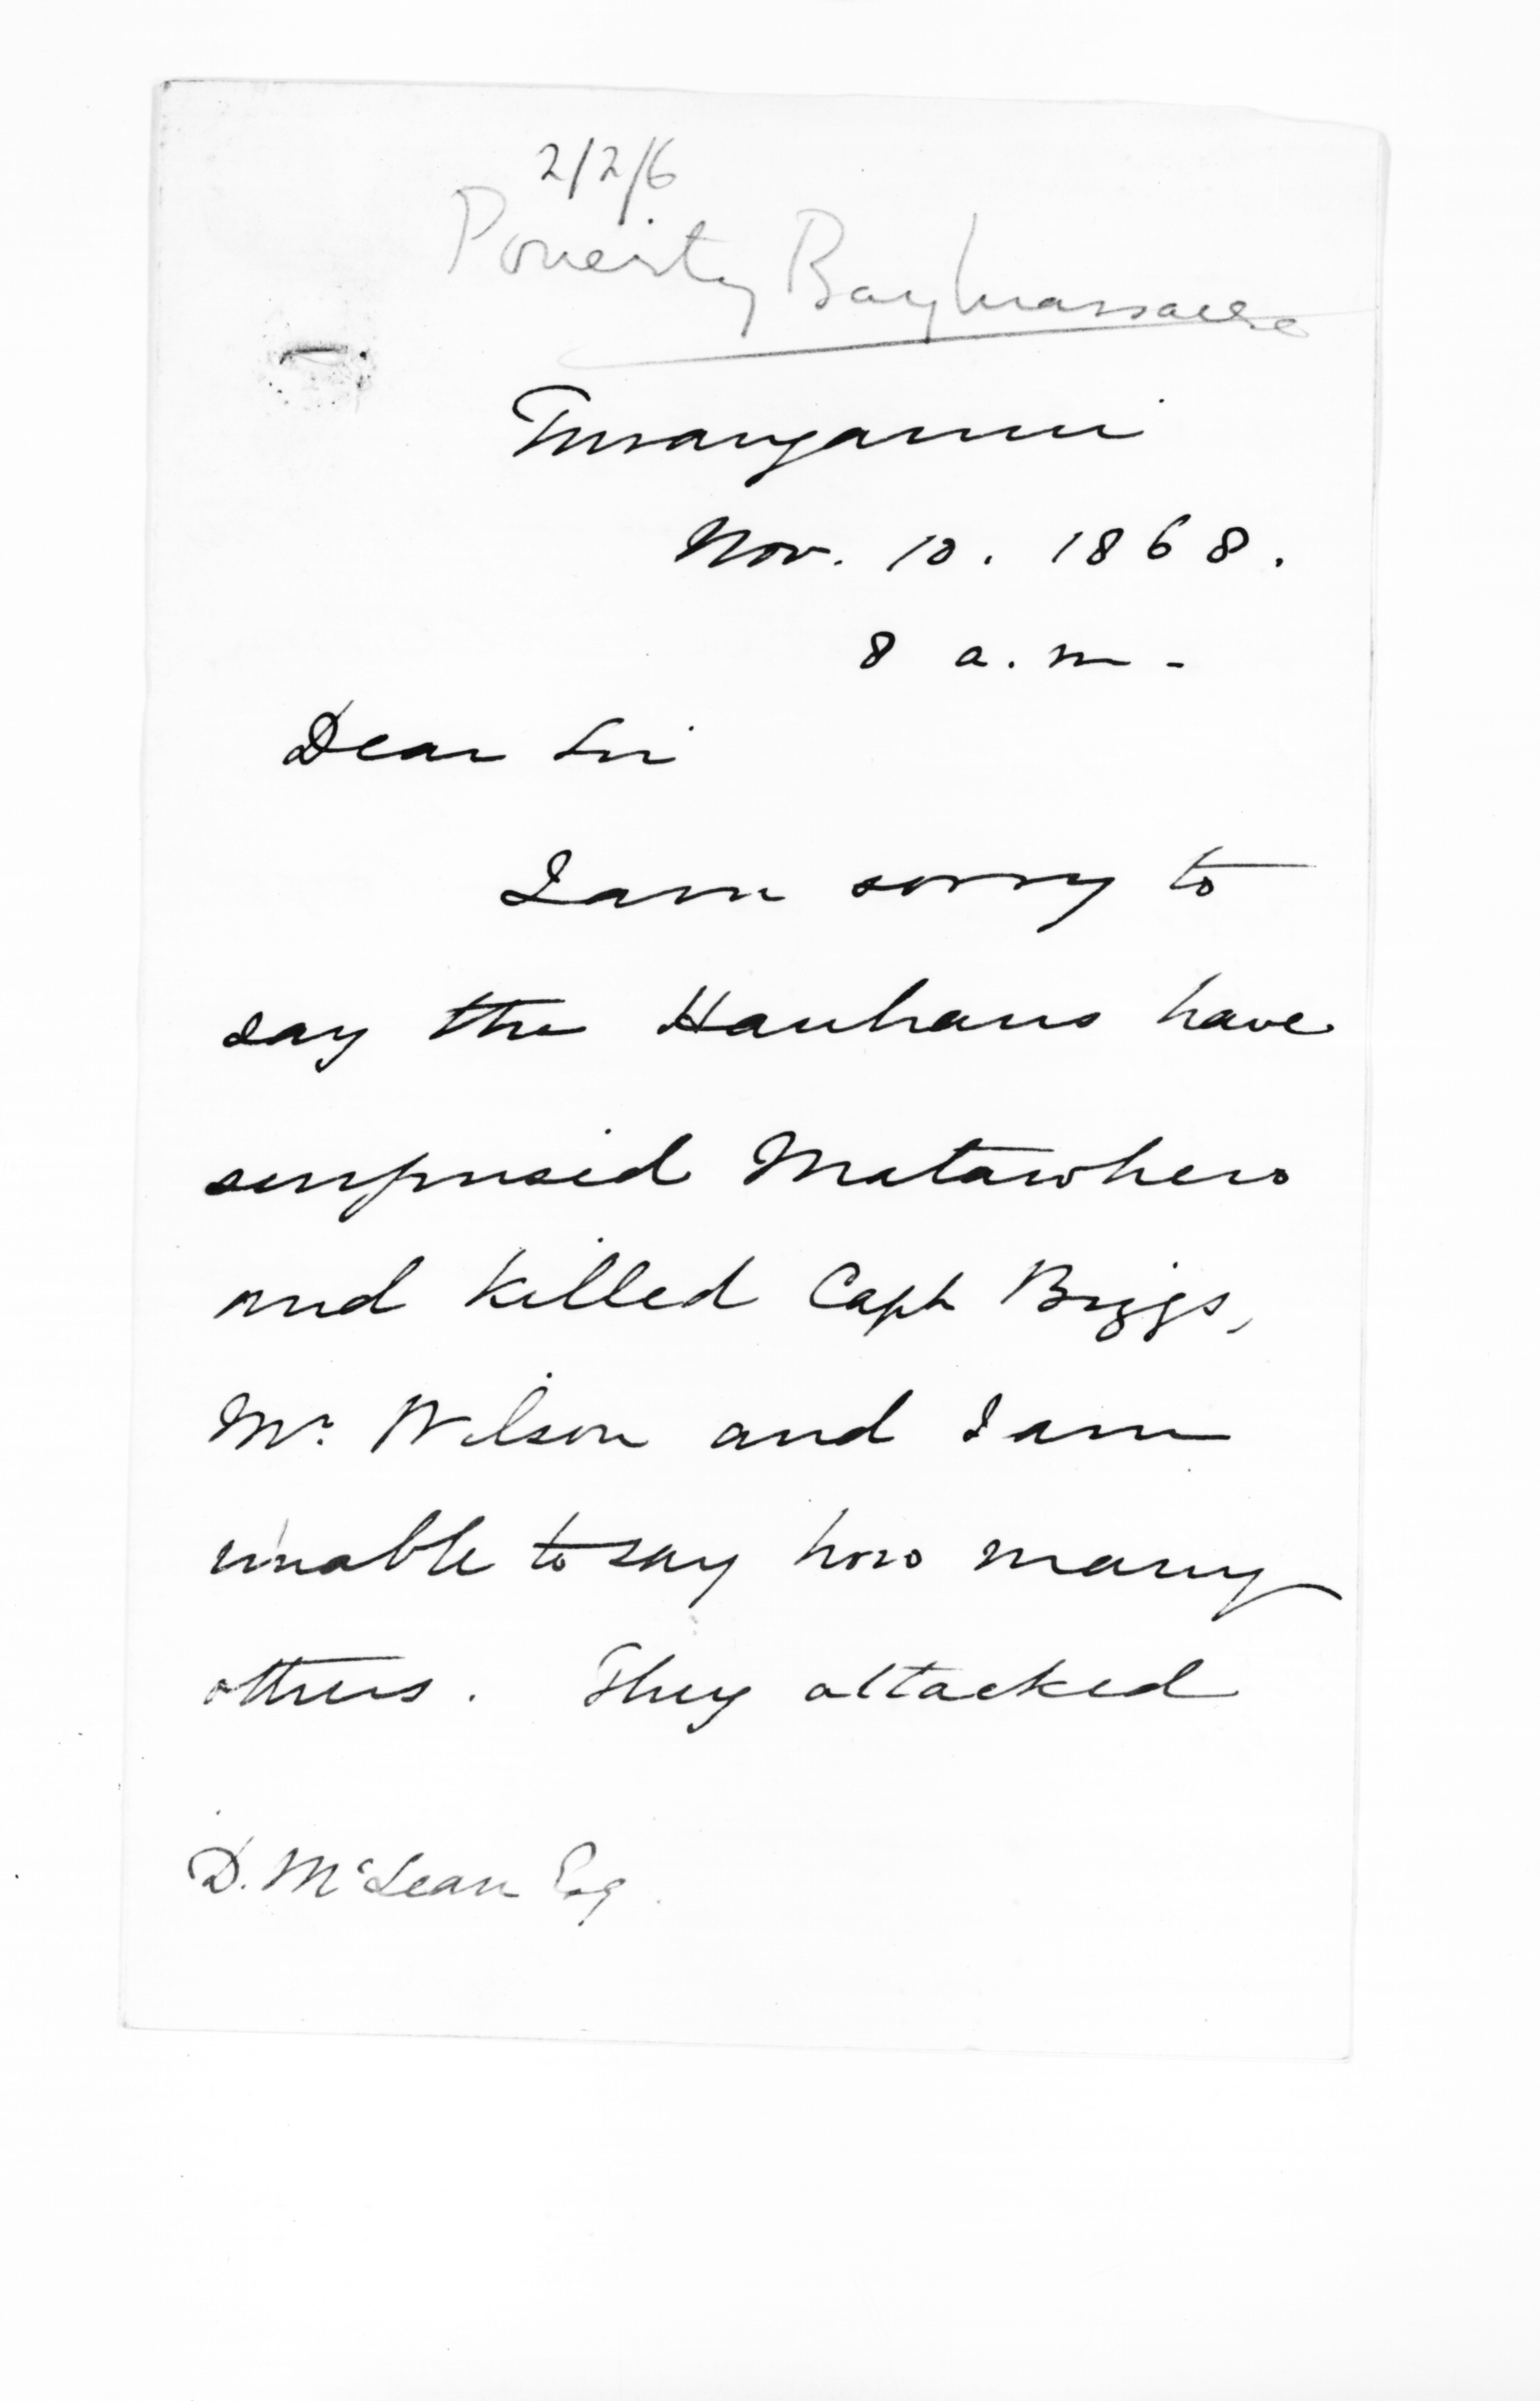 2/2/6
Poverty Bay Massacre
Turanganui
Nov. 10. 1868.
8 a.m.
Dear Sir
I am sorry to
say the Hauhaus have
surprised Matawhero
and killed Capt Biggs,
Mr. Wilson and I am
unable to say how many
others. They attacked
D. McLean Esq